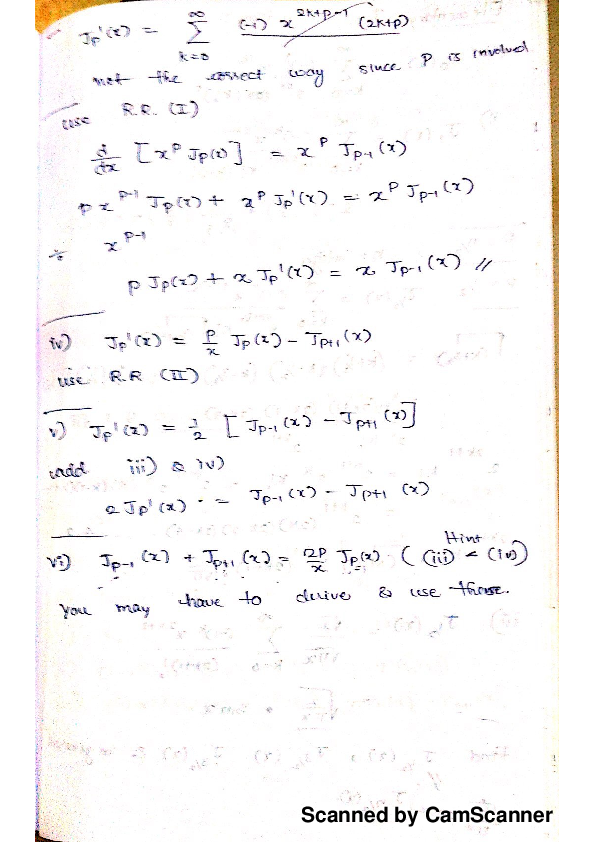 Jp'(x) = ∞ Σ k=0 (-1) x^(2k+p-1) (2k+p)
not the correct way since P is involved
use R.R. (I)
d/dx [x^p Jp(x)] = x^p Jp-1 (x)
p x^(p-1) Jp(x) + x^p Jp'(x) = x^p Jp-1 (x)
÷ x^(p-1)
p Jp(x) + x Jp'(x) = x Jp-1 (x) //
iv) Jp'(x) = p/x Jp(x) - Jp+1 (x)
use R.R (II)
v) Jp'(x) = 1/2 [Jp-1 (x) - Jp+1 (x)]
add iii) & iv)
2 Jp'(x) = Jp-1 (x) - Jp+1 (x)
Hint
vi) Jp-1 (x) + Jp+1 (x) = 2p/x Jp(x) ( (iii) - (iv))
you may have to derive & use those.
Scanned by CamScanner